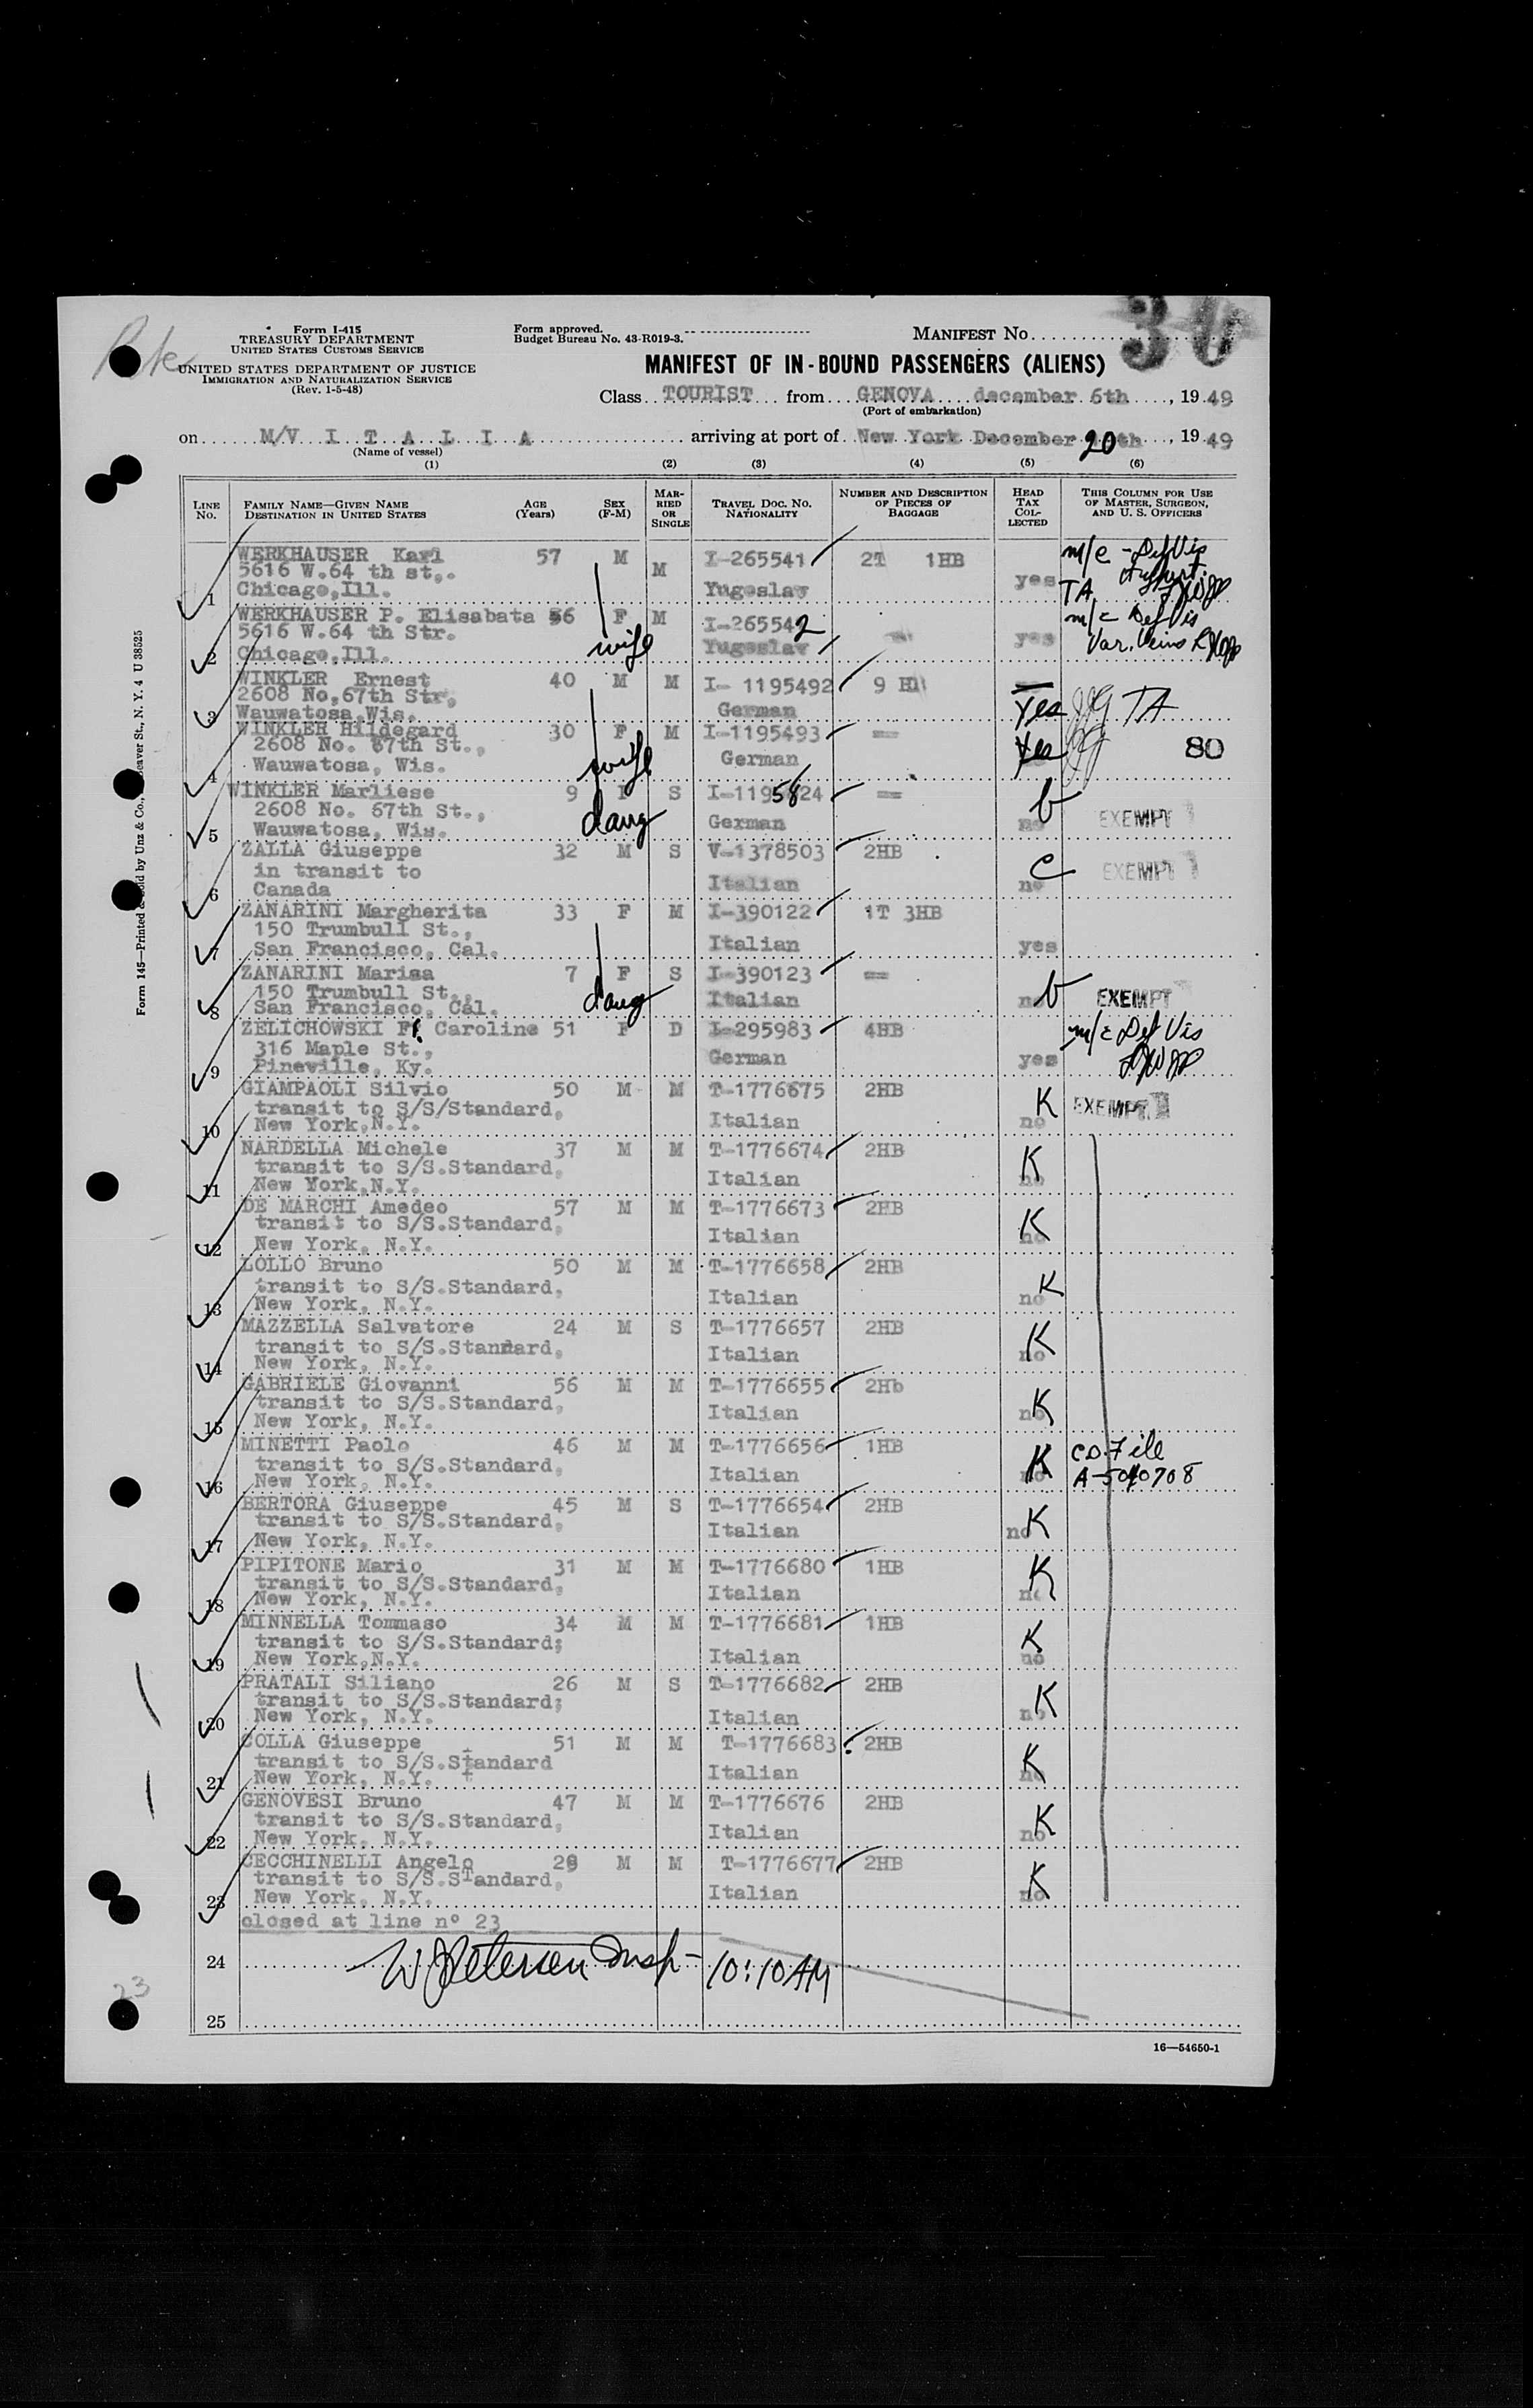 Form I-415
TREASURY DEPARTMENT
UNITED STATES CUSTOMS SERVICE
UNITED STATES DEPARTMENT OF JUSTICE
IMMIGRATION AND NATURALIZATION SERVICE
(Rev. 1-5-48)
Form approved.
Budget Bureau No. 43-R019-3.
MANIFEST NO. 30
MANIFEST OF IN-BOUND PASSENGERS (ALIENS)
Class TOURIST from GENOVA december 6th, 1949
(Port of embarkation)
on M/V I T A L I A arriving at port of New York December 20th, 1949
(Name of vessel)
(1) (2) (3) (4) (5) (6)
LINE NO. FAMILY NAME—GIVEN NAME DESTINATION IN UNITED STATES AGE (Years) SEX (F-M) MARRIED OR SINGLE TRAVEL DOC. NO. NATIONALITY NUMBER AND DESCRIPTION OF PIECES OF BAGGAGE HEAD TAX COLLECTED THIS COLUMN FOR USE OF MASTER, SURGEON, AND U. S. OFFICERS
WERKHAUSER Karl 57 M M I-265541 2T 1HB m/c - Def Vis
5616 W.64 th st,. yes
1 Chicago,Ill. Yugoslav TA
WERKHAUSER P. Elisabata 56 F M I-265542 m/c Def Vis
5616 W.64 th Str. wife yes Var. Veins
2 Chicago,Ill. Yugoslav
WINKLER Ernest 40 M M I- 1195492 9 HB
2608 No,67th Str,
3 Wauwatosa,Wis. German Yes TA
WINKLER Hildegard 30 F M I-1195493 ==
2608 No. 67th St., wife Yes 80
4 Wauwatosa, Wis. German
WINKLER Marliese 9 F S I-1195824 == b
2608 No. 67th St., daug no EXEMPT
5 Wauwatosa, Wis. German
ZALLA Giuseppe 32 M S V-1378503 2HB c
in transit to EXEMPT
6 Canada Italian no
ZANARINI Margherita 33 F M I-390122 1T 3HB
150 Trumbull St.,
7 San Francisco, Cal. Italian yes
ZANARINI Marisa 7 F S I-390123 ==
150 Trumbull St., daug no b EXEMPT
8 San Francisco, Cal. Italian
ZELICHOWSKI F. Caroline 51 F D I-295983 4HB m/c Def Vis
316 Maple St.,
9 Pineville, Ky. German yes
GIAMPAOLI Silvio 50 M M T-1776675 2HB K EXEMPT
transit to S/S/Standard,
10 New York,N.Y. Italian no
NARDELLA Michele 37 M M T-1776674 2HB K
transit to S/S.Standard,
11 New York,N.Y. Italian no
DE MARCHI Amedeo 57 M M T-1776673 2HB K
transit to S/S.Standard,
12 New York, N.Y. Italian no
LOLLO Bruno 50 M M T-1776658 2HB K
transit to S/S.Standard,
13 New York, N.Y. Italian no
MAZZELLA Salvatore 24 M S T-1776657 2HB K
transit to S/S.Standard,
14 New York, N.Y. Italian no
GABRIELE Giovanni 56 M M T-1776655 2Hb K
transit to S/S.Standard,
15 New York, N.Y. Italian no
MINETTI Paolo 46 M M T-1776656 1HB K CO. File
transit to S/S.Standard, A-5040708
16 New York, N.Y. Italian no
BERTORA Giuseppe 45 M S T-1776654 2HB K
transit to S/S.Standard,
17 New York, N.Y. Italian no
PIPITONE Mario 31 M M T-1776680 1HB K
transit to S/S.Standard,
18 New York, N.Y. Italian no
MINNELLA Tommaso 34 M M T-1776681 1HB K
transit to S/S.Standard;
19 New York,N.Y. Italian no
PRATALI Siliano 26 M S T-1776682 2HB K
transit to S/S.Standard;
20 New York, N.Y. Italian no
COLLA Giuseppe 51 M M T-1776683 2HB K
transit to S/S.Standard
21 New York, N.Y. Italian no
GENOVESI Bruno 47 M M T-1776676 2HB K
transit to S/S.Standard,
22 New York, N.Y. Italian no
CECCHINELLI Angelo 29 M M T-1776677 2HB K
transit to S/S.STandard,
23 New York, N.Y. Italian no
closed at line n° 23
24 W Petersen Insp- 10:10 AM
25
23
16—54650-1